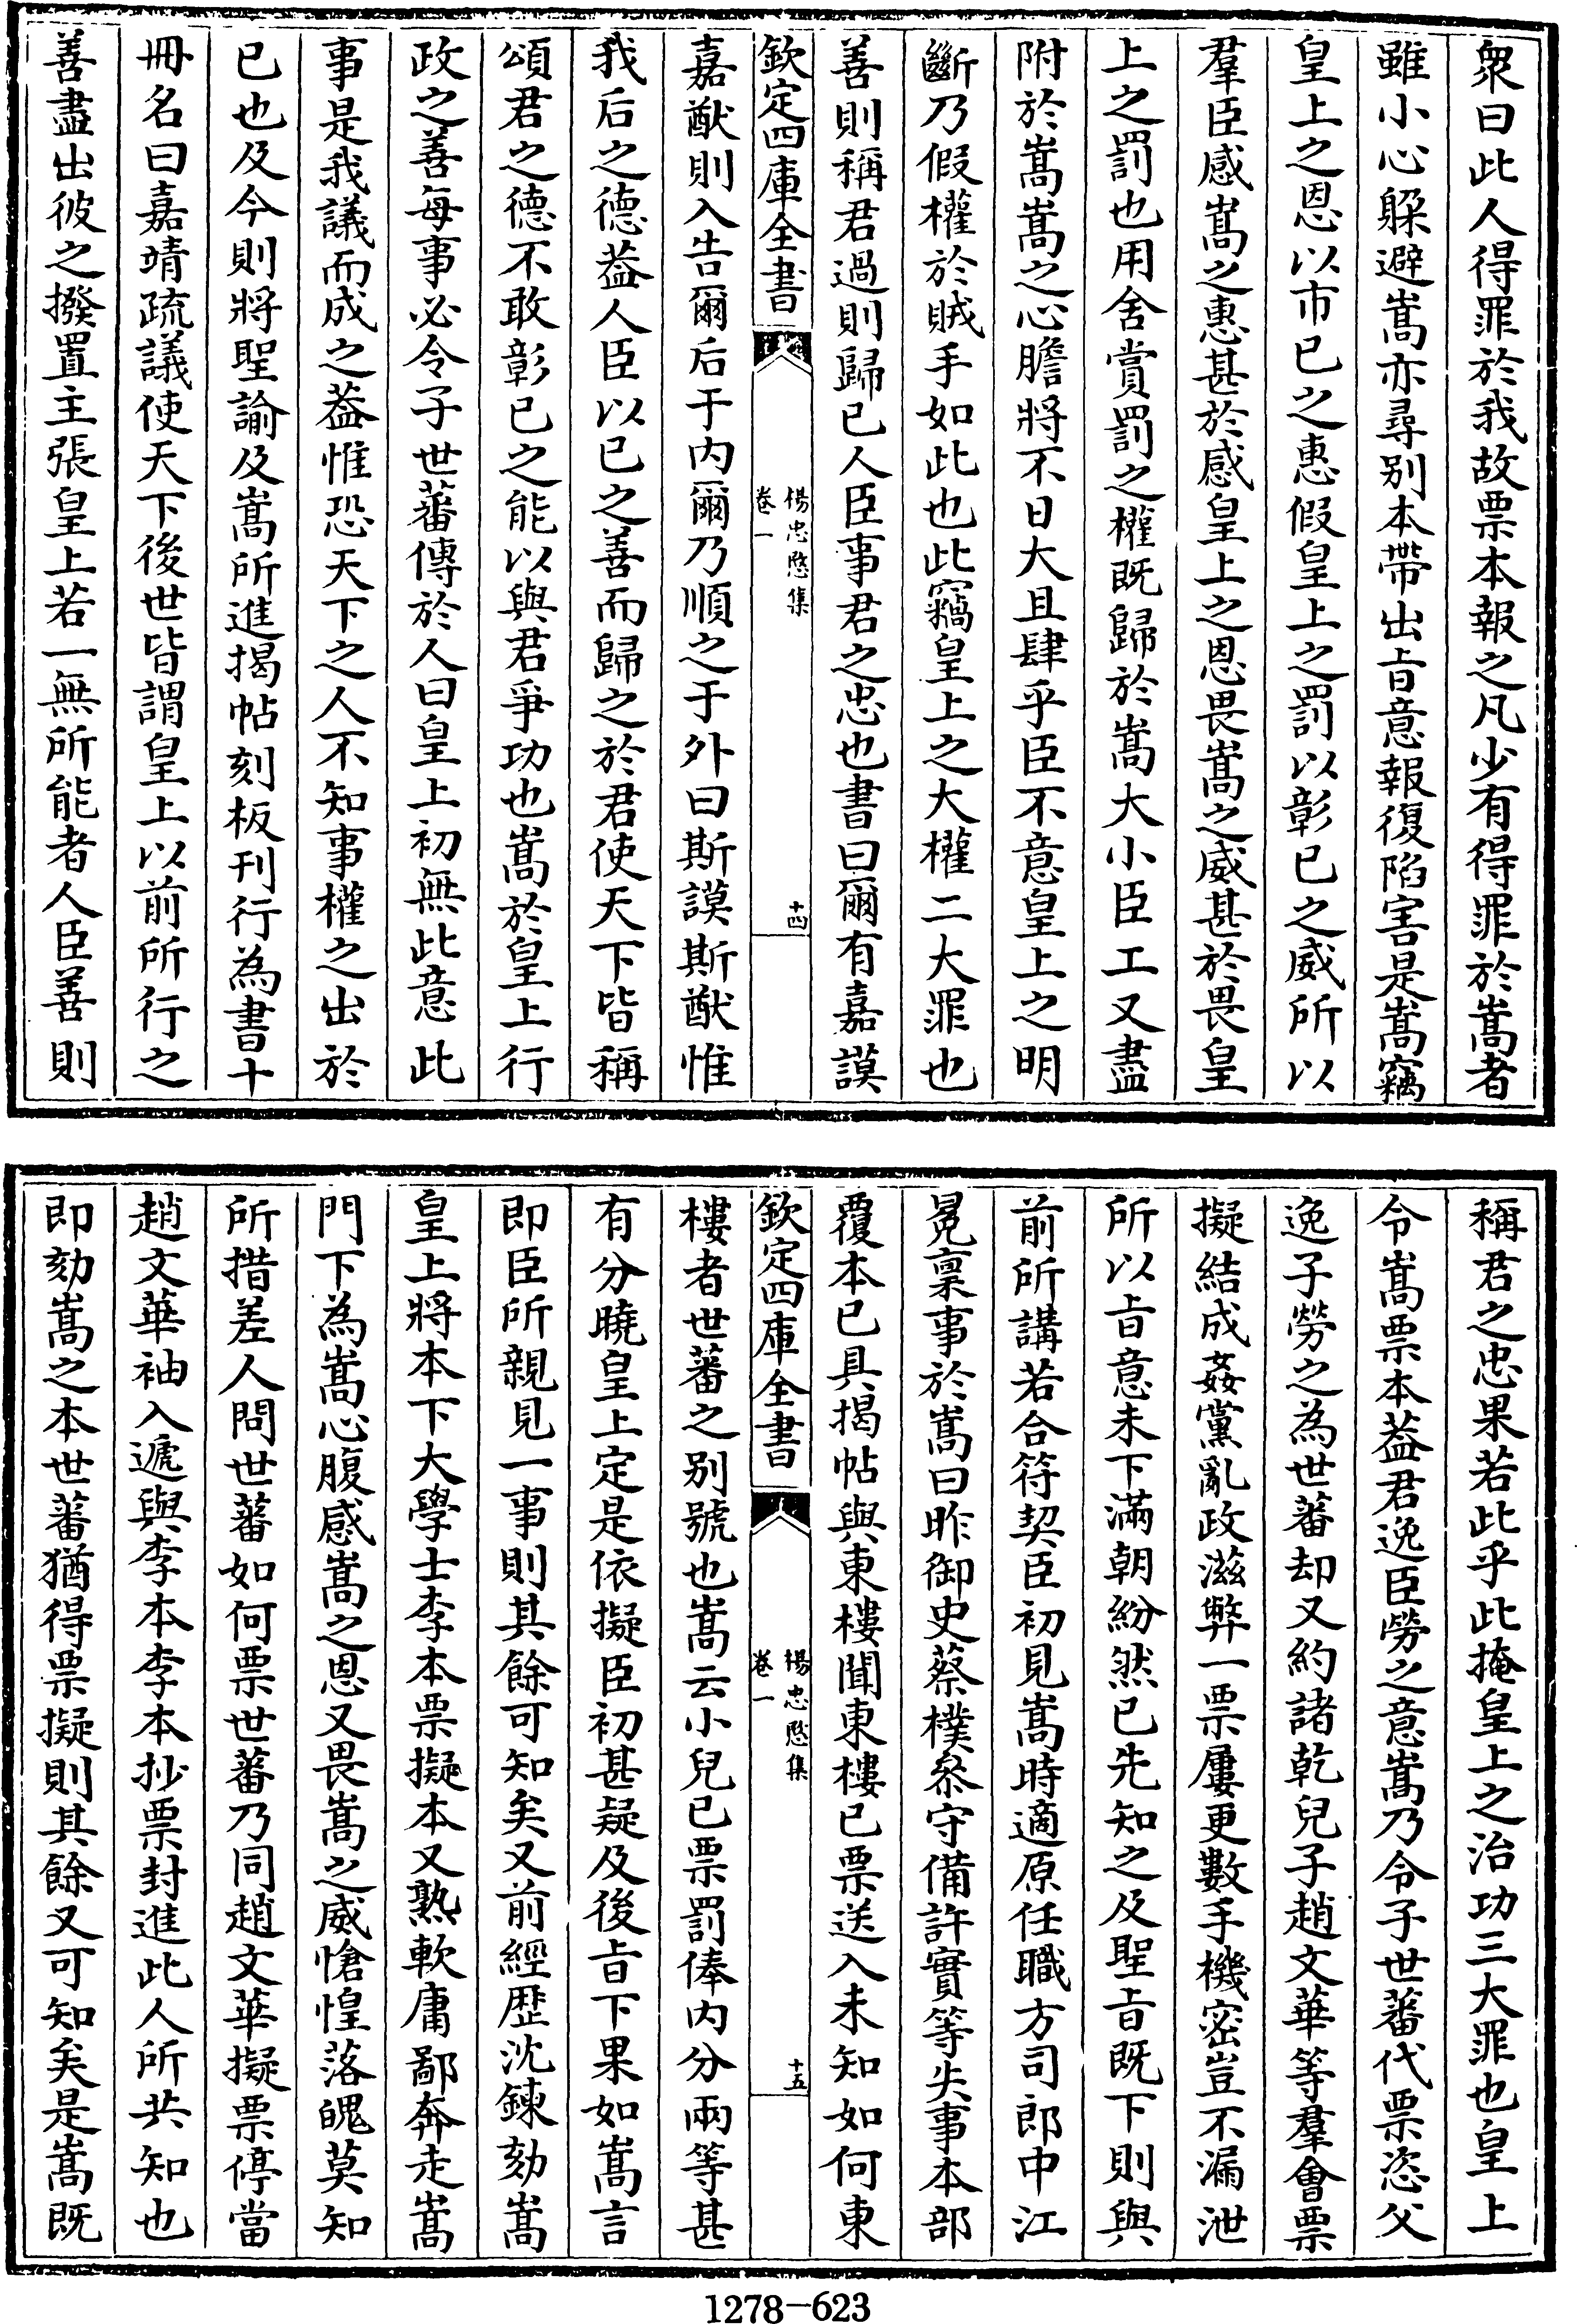 衆曰此人得罪於我故票本報之凡少有得罪於嵩者
雖小心躱避嵩亦尋别本帶出㫖意報復陷害是嵩竊
皇上之恩以市已之惠假皇上之罰以彰已之威所以
羣臣感嵩之惠甚於感皇上之恩畏嵩之威甚於畏皇
上之罰也用舍賞罰之權既歸於嵩大小臣工又盡
附於嵩嵩之心膽將不日大且肆乎臣不意皇上之明
斷乃假權於賊手如此也此竊皇上之大權二大罪也
善則稱君過則歸已人臣事君之忠也書曰爾有嘉謨
欽定四庫全書
楊忠愍集
卷一
十四
嘉猷則入告爾后于内爾乃順之于外曰斯謨斯猷惟
我后之德葢人臣以已之善而歸之於君使天下皆稱
頌君之德不敢彰已之能以與君爭功也嵩於皇上行
政之善每事必令子世蕃傳於人曰皇上初無此意此
事是我議而成之葢惟恐天下之人不知事權之出於
已也及今則將聖諭及嵩所進揭帖刻板刊行為書十
冊名曰嘉靖疏議使天下後世皆謂皇上以前所行之
善盡出彼之撥置主張皇上若一無所能者人臣善則
稱君之忠果若此乎此掩皇上之治功三大罪也皇上
令嵩票本葢君逸臣勞之意嵩乃令子世蕃代票恣父
逸子勞之為世蕃却又約諸乾兒子趙文華等羣會票
擬結成姦黨亂政滋弊一票屢更數手機密豈不漏泄
所以㫖意未下滿朝紛然已先知之及聖㫖既下則與
前所講若合符契臣初見嵩時適原任職方司郎中江
冕禀事於嵩曰昨御史蔡樸叅守備許實等失事本部
覆本已具揭帖與東樓聞東樓已票送入未知如何東
欽定四庫全書
楊忠愍集
卷一
十五
樓者世蕃之别號也嵩云小兒已票罰俸内分兩等甚
有分曉皇上定是依擬臣初甚疑及後㫖下果如嵩言
即臣所親見一事則其餘可知矣又前經歴沈鍊劾嵩
皇上將本下大學士李本票擬本又熟軟庸鄙奔走嵩
門下為嵩心腹感嵩之恩又畏嵩之威愴惶落魄莫知
所措差人問世蕃如何票世蕃乃同趙文華擬票停當
趙文華袖入遞與李本李本抄票封進此人所共知也
即劾嵩之本世蕃猶得票擬則其餘又可知矣是嵩既
1278—623